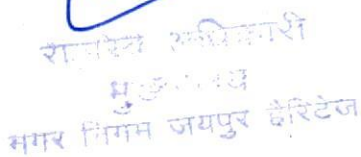 राजस्व अधिकारी
नगर निगम जयपुर हैरिटेज